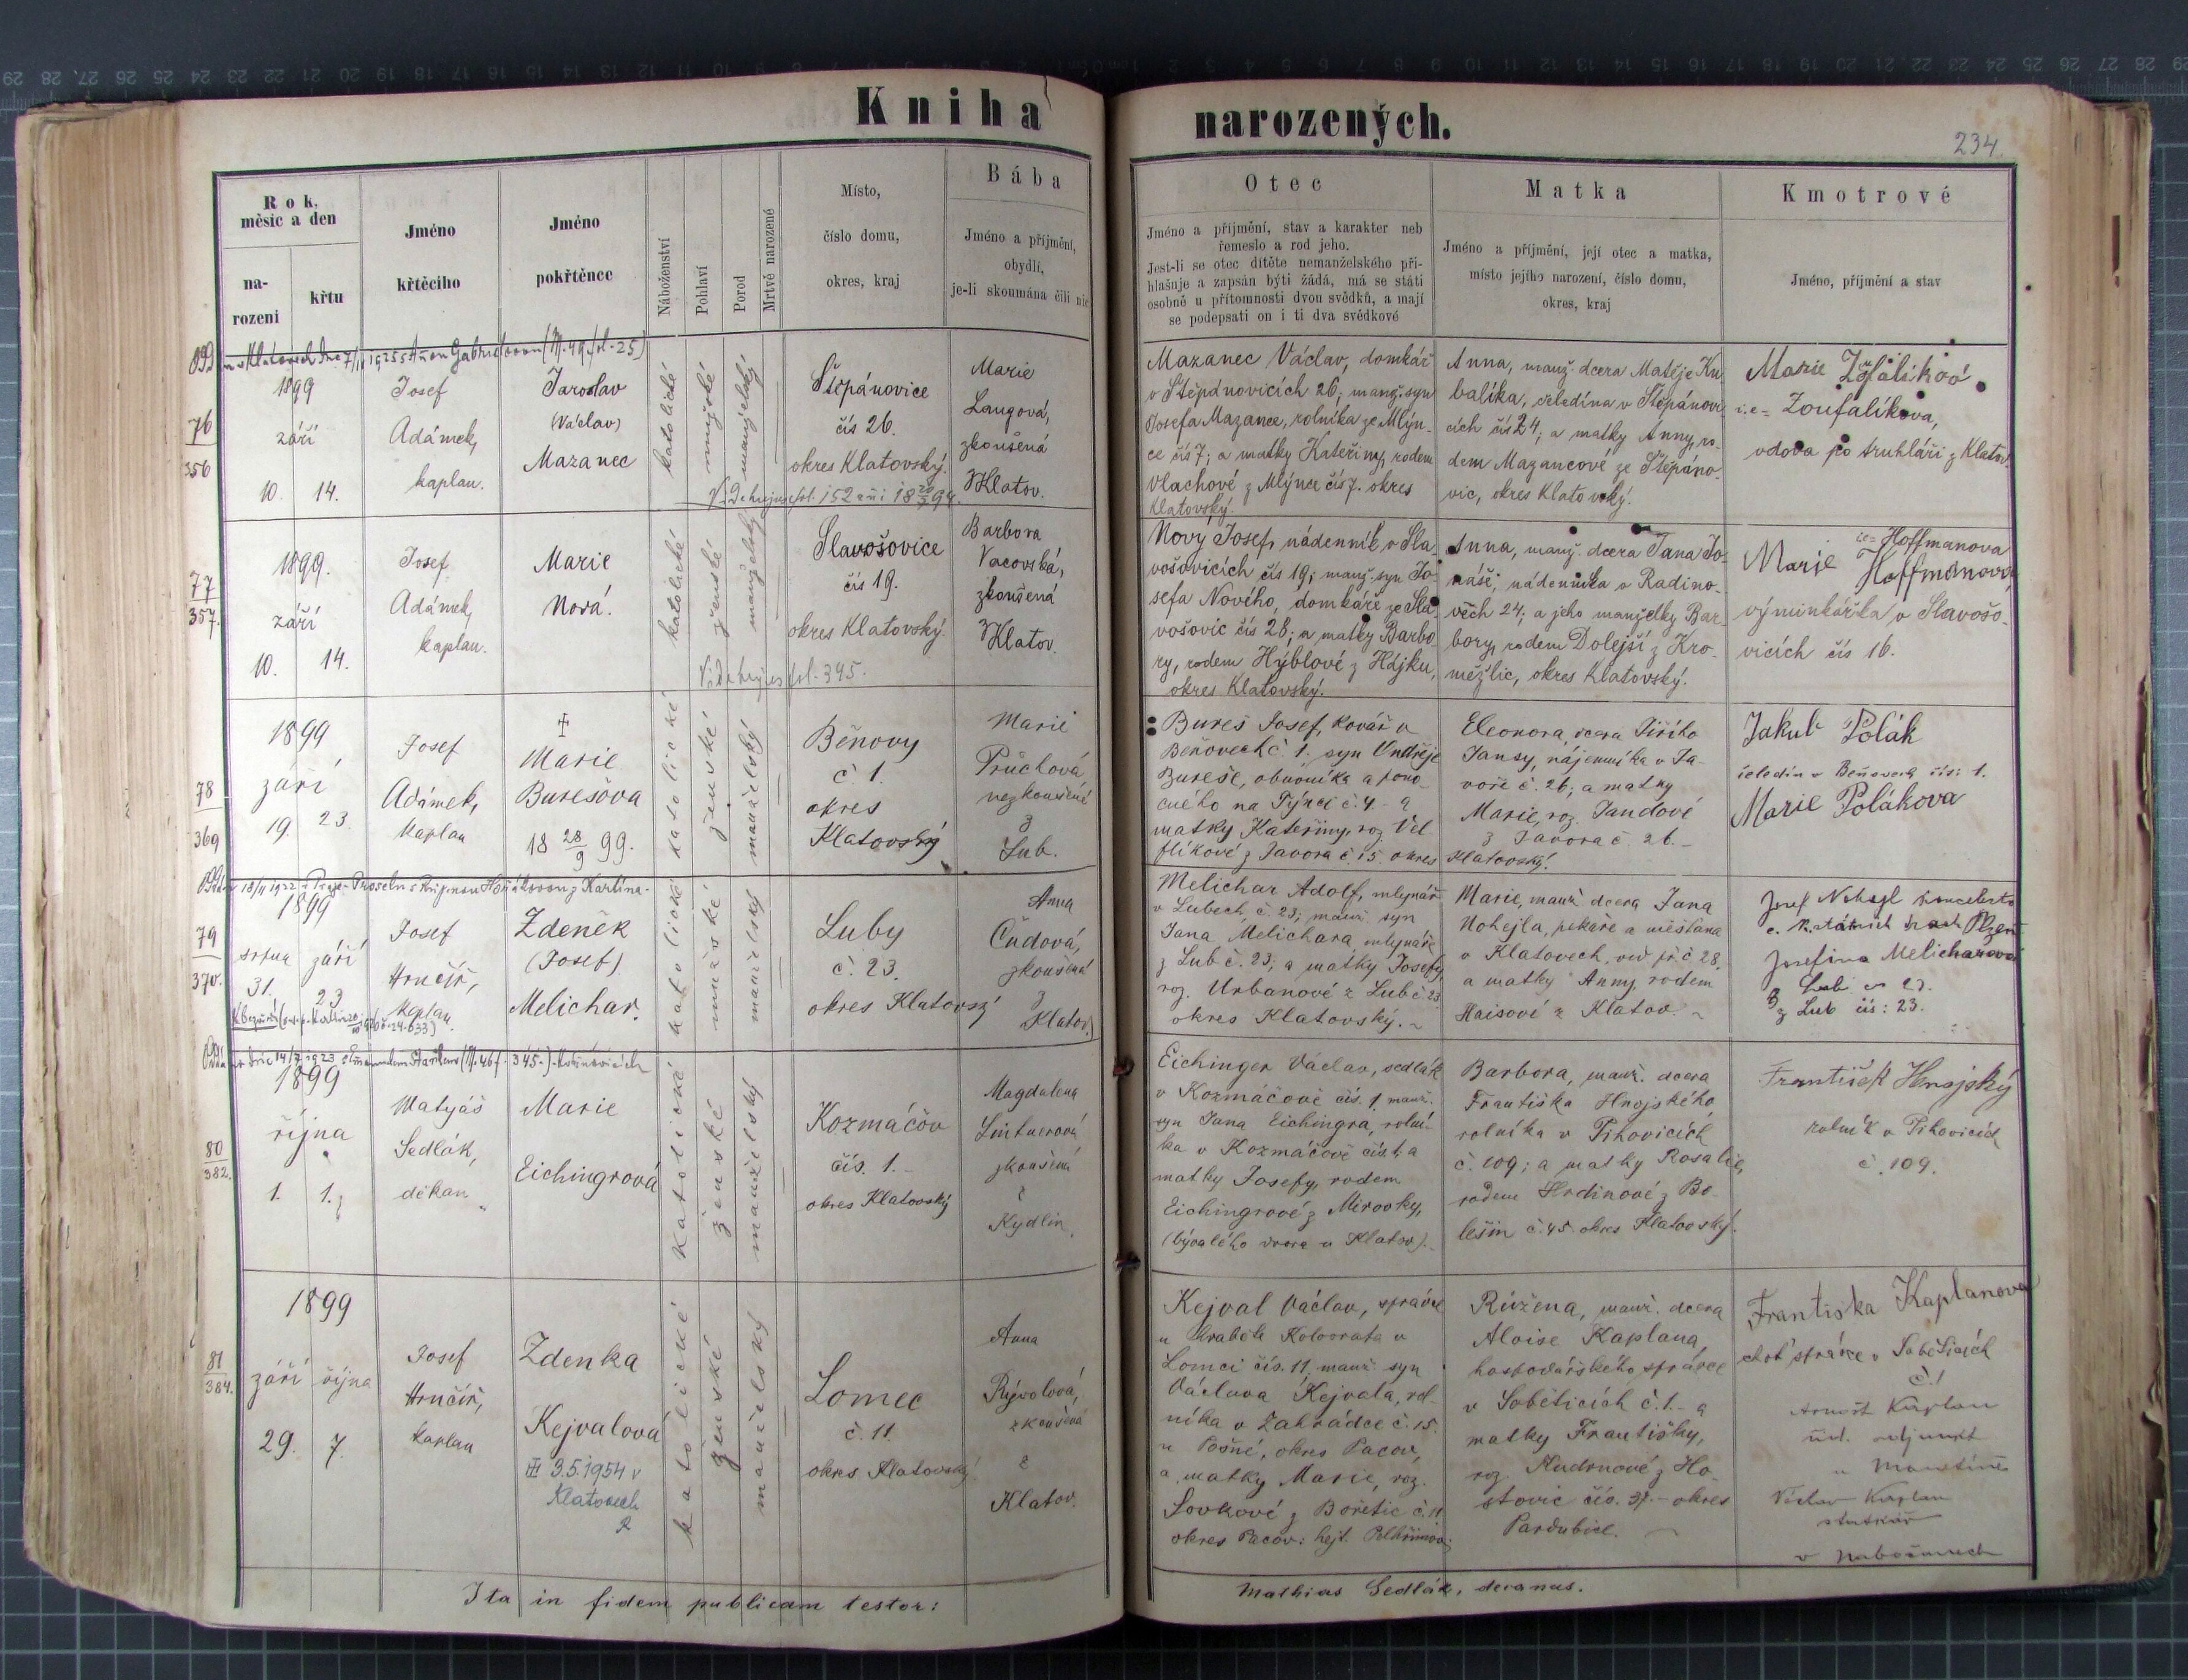 Kniha narozených.
234
Rok, měsíc a den
narozeni
křtu
Jméno křtěcího
Jméno pokřtěnce
Náboženství
Pohlaví
Porod
Mrtvě narozené
Místo,
číslo domu,
okres, kraj
Bába
Jméno a příjmění,
obydlí,
je-li skoumána čili nic
Otec
Jméno a příjmění, stav a karakter neb
řemeslo a rod jeho.
Jest-li se otec dítěte nemanželského při-
hlašuje a zapsán býti žádá, má se státi
osobně u přítomnosti dvou svědků, a mají
se podepsati on i ti dva svědkové
Matka
Jméno a příjmění, její otec a matka,
místo jejího narození, číslo domu,
okres, kraj
Kmotrové
Jméno, příjmění a stav
76
356
1899
září
10. 14.
Josef
Adámek,
kaplan.
Jaroslav
(Václav)
Mazanec
katolické
mužské
manželský
Štěpánovice
čís 26.
okres Klatovský.
Marie
Langová,
zkoušená
z Klatov.
Mazanec Václav, domkář
v Štěpánovicích 26; manž. syn
Josefa Mazance, rolníka ze Mlýn-
ce čís 7; a matky Kateřiny, rodem
Vlachové z Mlýnce čís 7. okres
Klatovský.
Anna, manž. dcera Matěje Ku
balíka, čeledína v Štěpánovi
cích čís 24; a matky Anny, ro-
dem Mazancové ze Štěpáno-
vic, okres Klatovský.
Marie
i.e. Zoufalíkova,
vdova po truhláři z Klatov.
77
357.
1899.
září
10. 14.
Josef
Adámek,
kaplan.
Marie
Nová.
katolické
ženské
manželský
Slavošovice
čís 19.
okres Klatovský.
fol. 395.
Barbora
Vacovská,
zkoušená
z Klatov.
Nový Josef, nádenník v Sla
vošovicích čís 19; manž. syn Jo-
sefa Nového, domkáře ze Sla
vošovic čís 28; a matky Barbo
ry, rodem Hýblové z Hájku,
okres Klatovský.
Anna, manž. dcera Jana Jo-
náše, nádenníka v Radino-
věch 24; a jeho manželky Bar-
bory, rodem Dolejší z Kro-
měžlic, okres Klatovský.
i.e. Hoffmanova
Marie Hoffmanová
výminkářka v Slavošo-
vicích čís 16.
78
369
1899
září
19. 23.
Josef
Adámek,
kaplan
Marie
Burešova
18 28/9 99.
katolické
ženské
manželský
Běňovy
č 1.
okres
Klatovský
Marie
Průchová,
nezkoušená
z
Lub.
Bureš Josef, kovář v
Beňovech č 1. syn Ondřeje
Bureše, obuvníka a
na Týnci č. 4. a
matky Kateřiny, roz. Vel
flíkové z Javora č. 15. okres
Klatovský.
Eleonora, dcera Jiřího
Jansy, nájemníka v Ja-
voře č. 26; a matky
Marie, roz. Jandové
z Javora č 26.
Jakub Polák
čeledín v Beňovech čís: 1.
Marie Polákova
79
370.
1899
srpna září
31. 23
Josef
Hrnčíř,
kaplan.
Zdeněk
(Josef)
Melichar.
katolické
mužské
manželský
Luby
č. 23.
okres Klatovský
Anna
Čudová,
zkoušená
z
Klatov.
Melichar Adolf, mlynář
v Lubech č. 23; manž. syn
Jana Melichara, mlynáře
z Lub č. 23; a matky Josefy
roz. Urbanové z Lub č. 23
okres Klatovský.
Marie, manž. dcera Jana
Nohejla, pekaře a měšťana
v Klatovech, č 28,
a matky Anny, rodem
Haisové z Klatov.
Josef Nohejl
Josefina Melicharová
z Lub čís: 23.
80
382.
1899
října
1. 1.
Matyáš
Sedlák,
děkan
Marie
Eichingrová
katolické
ženské
manželský
Kozmáčov
čís. 1.
okres Klatovský
Magdalena
Lintnerová
zkoušená
z
Kydlin.
Eichinger Václav, sedlák
v Kozmáčově čís. 1. manž.
syn Jana Eichingra, rolní-
ka v Kozmáčově čís 1; a
matky Josefy, rodem
Eichingrové z Mirovky,
(bývalého dvora u Klatov).
Barbora, manž. dcera
Františka Hnojského,
rolníka v Tihovicích
č. 109; a matky Rosalie,
rodem Hrdinové z Bo-
lešin č. 45. okres Klatovský.
František Hnojský
rolník v Tihovicích
č. 109.
81
384.
1899
září října
29. 7.
Josef
Hrnčíř,
kaplan
Zdenka
Kejvalová
3.5.1954 v
Klatovech
katolické
ženské
manželský
Lomec
č. 11.
okres Klatovský.
Anna
Rývolová,
zkoušená
z
Klatov.
Kejval Václav, správce
u hraběte Kolovrata v
Lomci čís. 11, manž. syn
Václava Kejvala, rol-
níka v Zahrádce č. 15.
u Pošné, okres Pacov,
a matky Marie, roz.
Lovkové z Bořetic č. 11
okres Pacov: hejt. Pelhřimov.
Růžena, manž. dcera
Aloise Kaplana,
hospodářského správce
v Soběticích č. 1. a
matky Františky,
roz. Kudrnové z Ho-
stovic čís. 37. okres
Pardubice.
Františka Kaplanova
choť správce v Soběticích
č. 1
Arnošt Kaplan
Václav Kaplan
statkář
Ita in fidem publicam testor:
Mathias Sedlák, decanus.